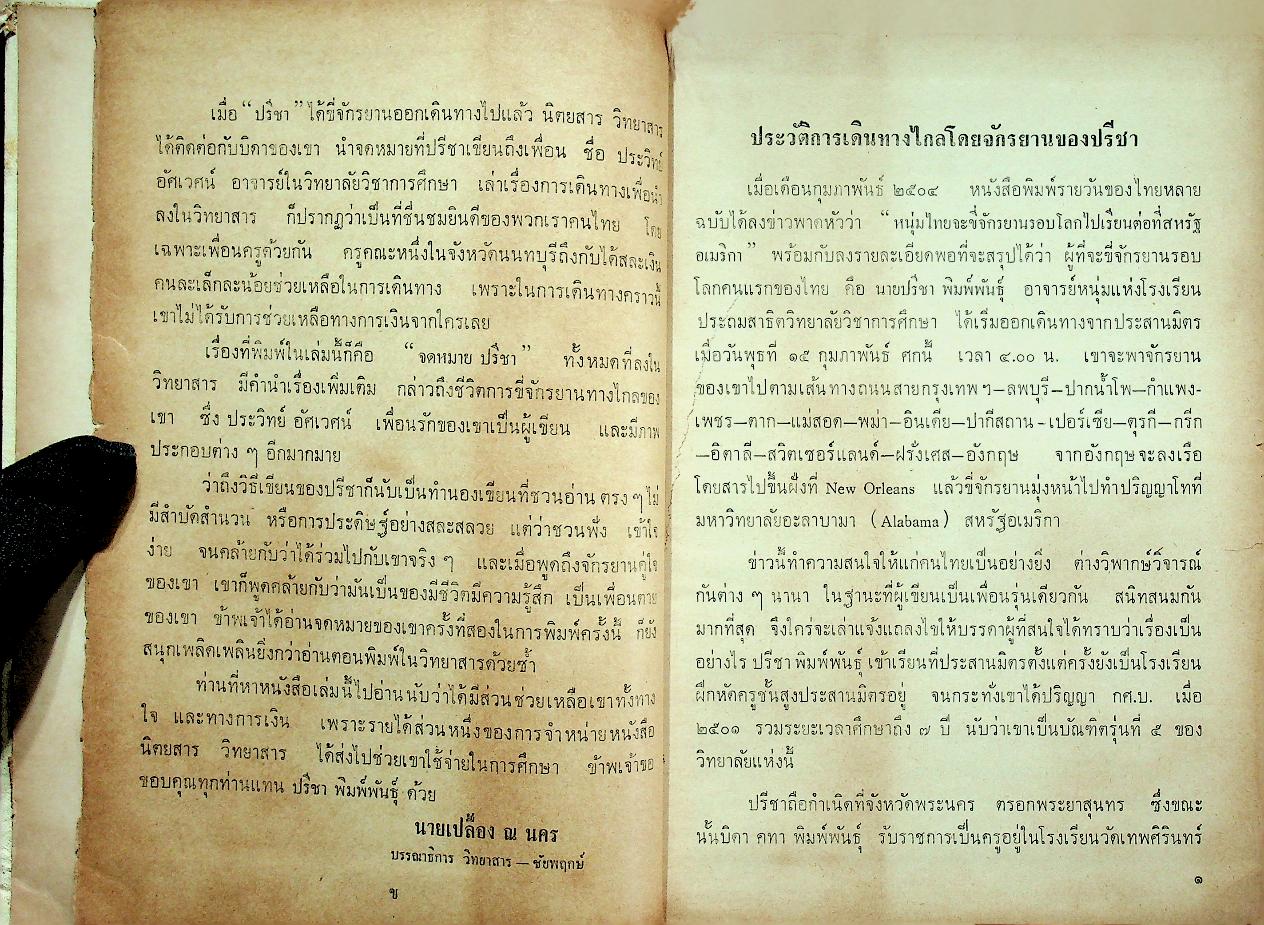 เมื่อ “ปรีชา” ได้ขี่จักรยานออกเดินทางไปแล้ว นิตยสาร วิทยาสาร
ได้ติดต่อกับบิดาของเขา นำจดหมายที่ปรีชาเขียนถึงเพื่อน ชื่อ ประวิทย์
อัศเวศน์ อาจารย์ในวิทยาลัยวิชาการศึกษา เล่าเรื่องการเดินทางเพื่อนำ
ลงในวิทยาสาร ก็ปรากฏว่าเป็นที่ชื่นชมยินดีของพวกเราคนไทย โดย
เฉพาะเพื่อนครูด้วยกัน ครูคณะหนึ่งในจังหวัดนนทบุรีถึงกับได้สละเงิน
คนละเล็กละน้อยช่วยเหลือในการเดินทาง เพราะในการเดินทางคราวนี้
เขาไม่ได้รับการช่วยเหลือทางการเงินจากใครเลย
เรื่องที่พิมพ์ในเล่มนี้ก็คือ “จดหมาย ปรีชา” ทั้งหมดที่ลงใน
วิทยาสาร มีคำนำเรื่องเพิ่มเติม กล่าวถึงชีวิตการขี่จักรยานทางไกลของ
เขา ซึ่ง ประวิทย์ อัศเวศน์ เพื่อนรักของเขาเป็นผู้เขียน และมีภาพ
ประกอบต่าง ๆ อีกมากมาย
ว่าถึงวิธีเขียนของปรีชาก็นับเป็นทำนองเขียนที่ชวนอ่าน ตรง ๆ ไม่
มีสำบัดสำนวน หรือการประดิษฐ์อย่างสละสลวย แต่ว่าชวนฟัง เข้าใจ
ง่าย จนคล้ายกับว่าได้ร่วมไปกับเขาจริง ๆ และเมื่อพูดถึงจักรยานคู่ใจ
ของเขา เขาก็พูดคล้ายกับว่ามันเป็นของมีชีวิตมีความรู้สึก เป็นเพื่อนตาย
ของเขา ข้าพเจ้าได้อ่านจดหมายของเขาครั้งที่สองในการพิมพ์ครั้งนี้ ก็ยัง
สนุกเพลิดเพลินยิ่งกว่าอ่านตอนพิมพ์ในวิทยาสารด้วยซ้ำ
ท่านที่หาหนังสือเล่มนี้ไปอ่าน นับว่าได้มีส่วนช่วยเหลือเขาทั้งทาง
ใจ และทางการเงิน เพราะรายได้ส่วนหนึ่งของการจำหน่ายหนังสือ
นิตยสาร วิทยาสาร ได้ส่งไปช่วยเขาใช้จ่ายในการศึกษา ข้าพเจ้าขอ
ขอบคุณทุกท่านแทน ปรีชา พิมพ์พันธุ์ ด้วย
นายเปลื้อง ณ นคร
บรรณาธิการ วิทยาสาร — ชัยพฤกษ์
ข
ประวัติการเดินทางไกลโดยจักรยานของปรีชา
เมื่อเดือนกุมภาพันธ์ ๒๕๐๔ หนังสือพิมพ์รายวันของไทยหลาย
ฉบับได้ลงข่าวพาดหัวว่า “หนุ่มไทยจะขี่จักรยานรอบโลกไปเรียนต่อที่สหรัฐ
อเมริกา” พร้อมกับลงรายละเอียดพอที่จะสรุปได้ว่า ผู้ที่จะขี่จักรยานรอบ
โลกคนแรกของไทย คือ นายปรีชา พิมพ์พันธุ์ อาจารย์หนุ่มแห่งโรงเรียน
ประถมสาธิตวิทยาลัยวิชาการศึกษา ได้เริ่มออกเดินทางจากประสานมิตร
เมื่อวันพุธที่ ๑๕ กุมภาพันธ์ ศกนี้ เวลา ๔.๐๐ น. เขาจะพาจักรยาน
ของเขาไปตามเส้นทางถนนสายกรุงเทพ ฯ—ลพบุรี—ปากน้ำโพ—กำแพง-
เพชร—ตาก—แม่สอด—พม่า—อินเดีย—ปากีสถาน - เปอร์เซีย—ตุรกี—กรีก
—อิตาลี—สวิตเซอร์แลนด์—ฝรั่งเศส—อังกฤษ จากอังกฤษจะลงเรือ
โดยสารไปขึ้นฝั่งที่ New Orleans แล้วขี่จักรยานมุ่งหน้าไปทำปริญญาโทที่
มหาวิทยาลัยอะลาบามา (Alabama) สหรัฐอเมริกา
ข่าวนี้ทำความสนใจให้แก่คนไทยเป็นอย่างยิ่ง ต่างวิพากษ์วิจารณ์
กันต่าง ๆ นานา ในฐานะที่ผู้เขียนเป็นเพื่อนรุ่นเดียวกัน สนิทสนมกัน
มากที่สุด จึงใคร่จะเล่าแจ้งแถลงไขให้บรรดาผู้ที่สนใจได้ทราบว่าเรื่องเป็น
อย่างไร ปรีชา พิมพ์พันธุ์ เข้าเรียนที่ประสานมิตรตั้งแต่ครั้งยังเป็นโรงเรียน
ฝึกหัดครูชั้นสูงประสานมิตรอยู่ จนกระทั่งเขาได้ปริญญา กศ.บ. เมื่อ
๒๕๐๑ รวมระยะเวลาศึกษาถึง ๗ ปี นับว่าเขาเป็นบัณฑิตรุ่นที่ ๕ ของ
วิทยาลัยแห่งนี้
ปรีชาถือกำเนิดที่จังหวัดพระนคร ตรอกพระยาสุนทร ซึ่งขณะ
นั้นบิดา คทา พิมพ์พันธุ์ รับราชการเป็นครูอยู่ในโรงเรียนวัดเทพศิรินทร์
๑